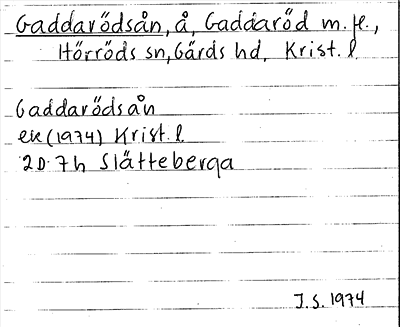 Gaddarödsån, å, Gaddaröd m.fl.,
Hörröds sn, Gärds hd, Krist. l
Gaddarödsån
ek (1974) Krist. l.
2D:7h Slätteberga
J.S. 1974